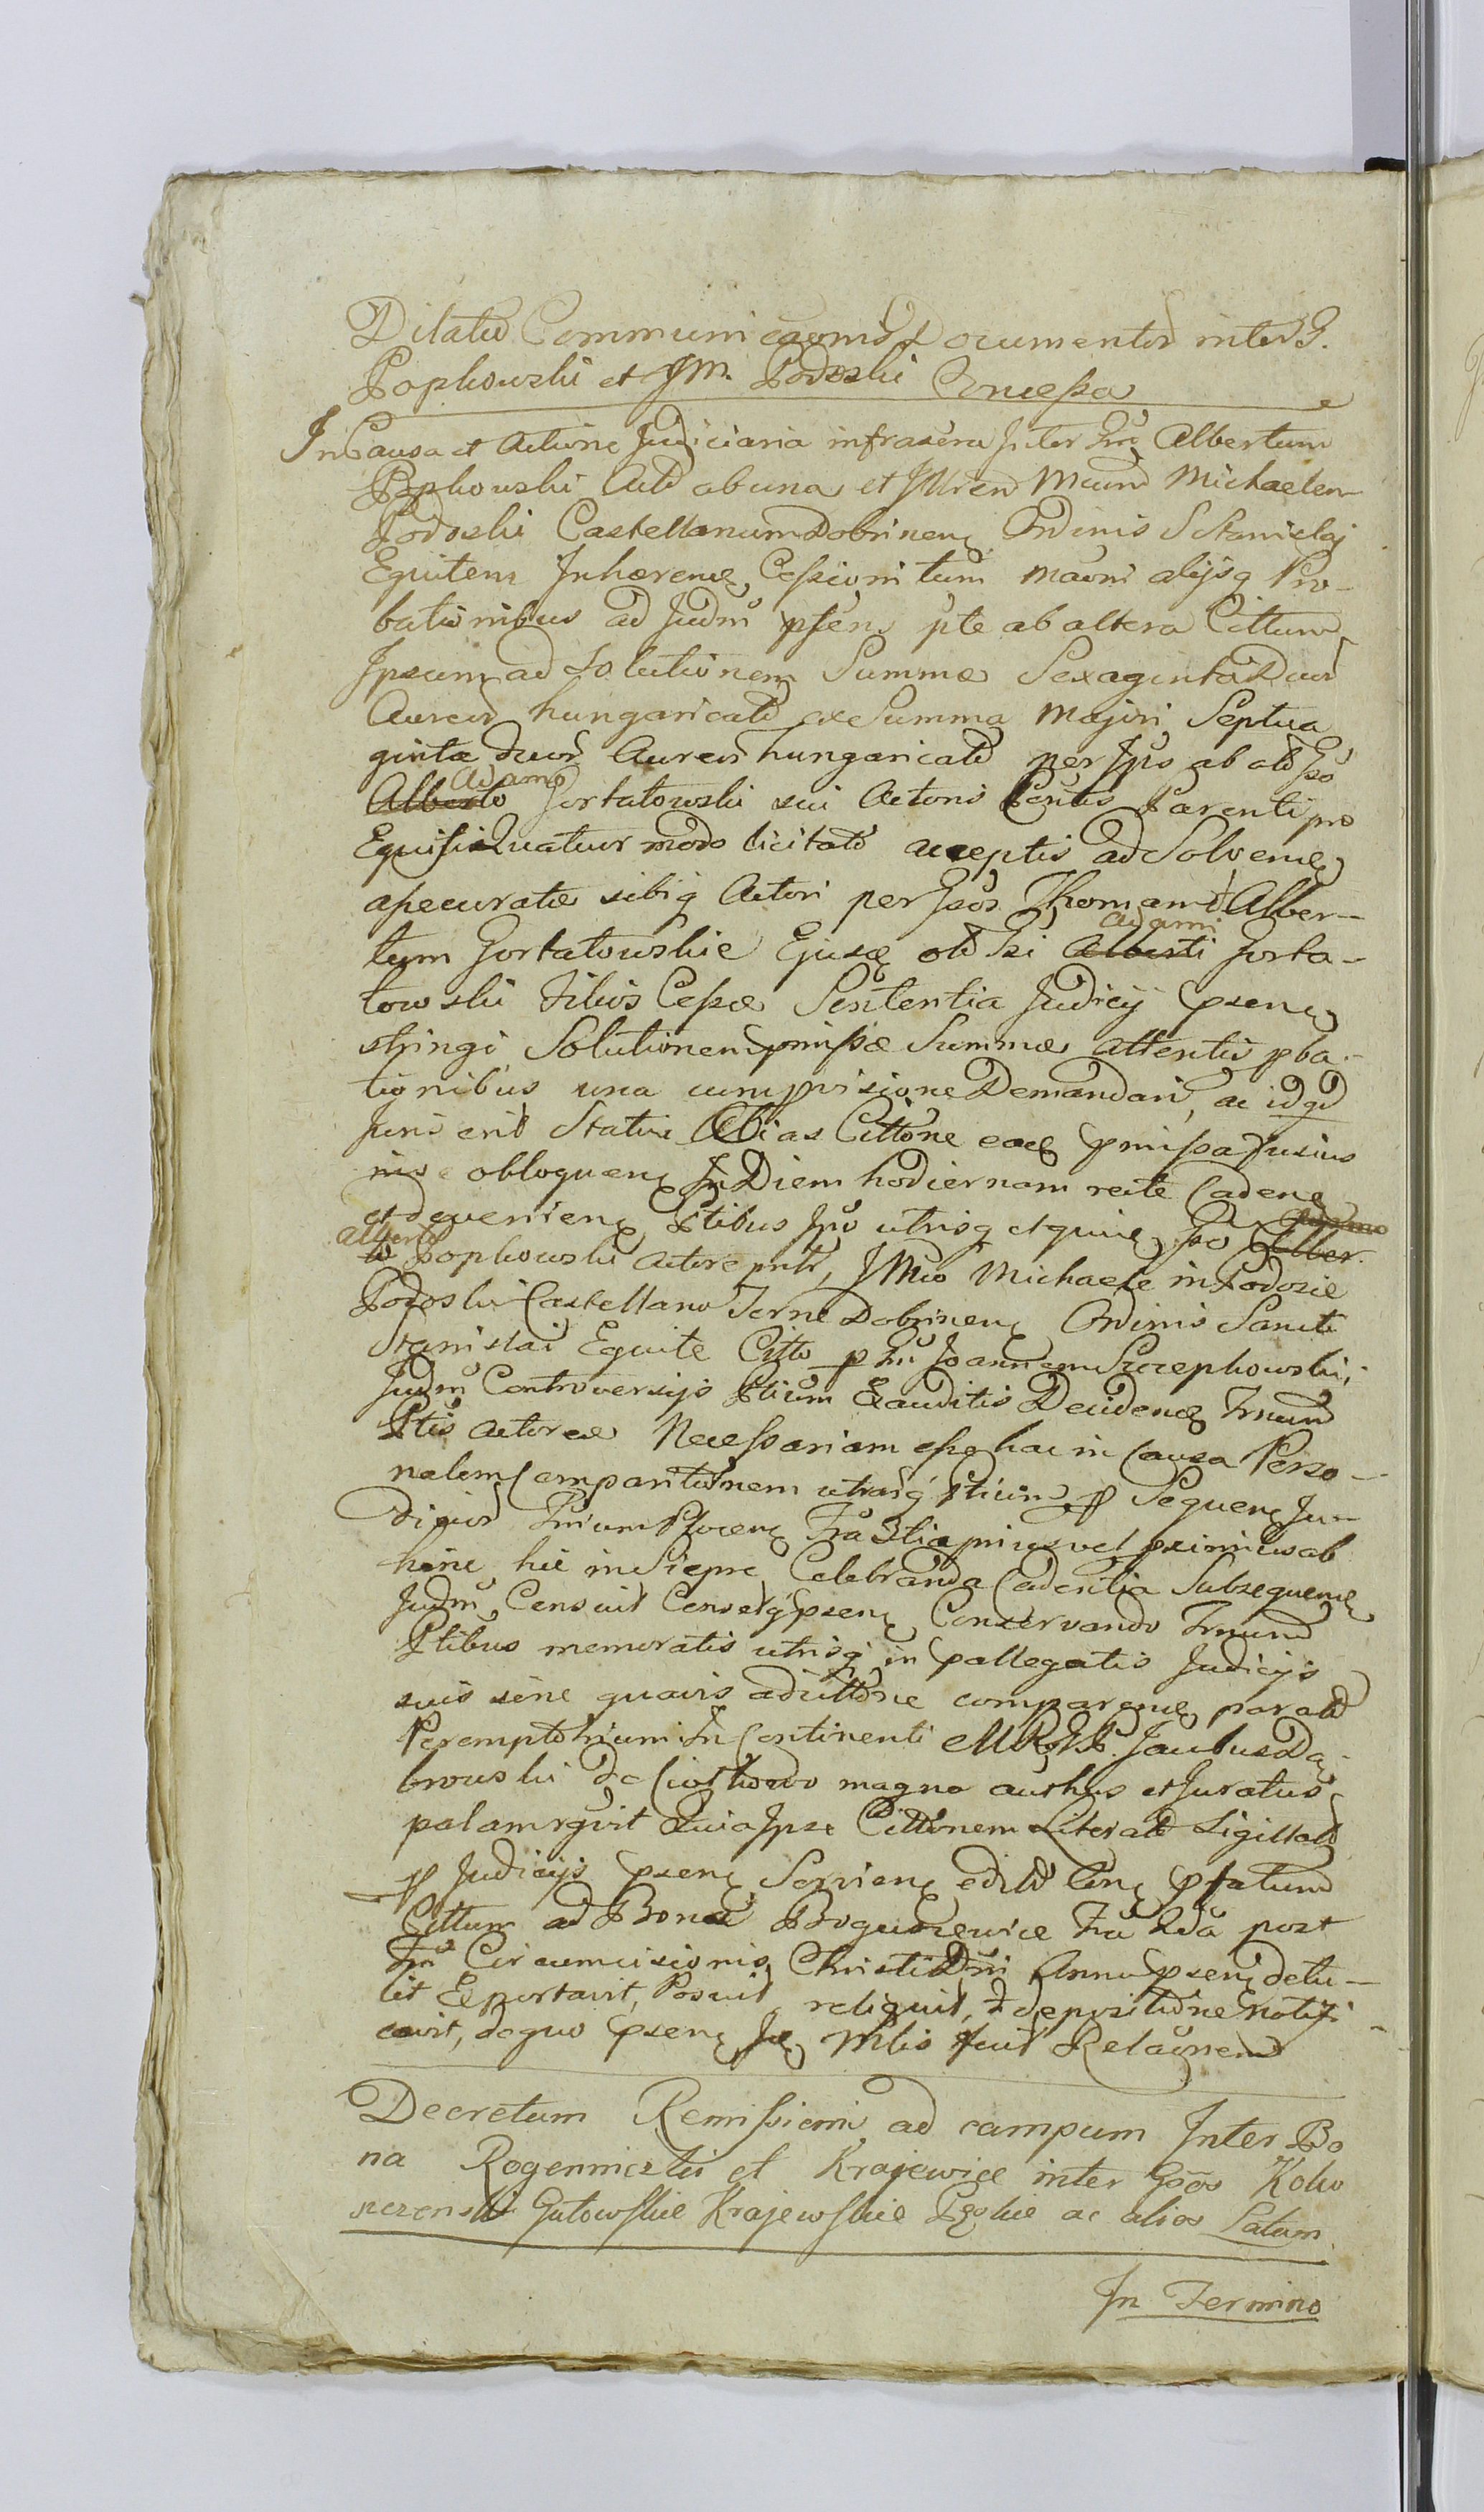 Dilatio Communicaonis Documentor inter G.
Popkowski et JM. Podoski Concessa
In Causa et Actione Judiciaria infrascra Inter Gnum Albertum
Popkowski Acto ab una et Illrem Mcum Michaelem
Podoski Castellanum Dobrinen Ordinis S Stanislaj
Equitem Inhaeren Cessioni tum maoni alijsq Pro-
bationibus ad Judm psens pte ab altera Cittum
Ipsum ad Solutionem Summæ Sexaginta Duor
Aureor hungaricalium ex Summa Majori Septua
ginta duor Aureor hungarical per Ipso ab olim Gso
Alberto Adamo Gortatowski sui Actoris Parenti pro
Equis Quatuor modo licitato acceptis ad Solven
assecuratæ sibiq Actori per Gsos Thomam & Alber-
tum Gortatowskie Ejusd olim Gsi Alberti Adami Gorta-
towski Filios Cessæ Sententia Judicij psen
stringi Solutionem pmissæ Summæ attentis pba-
tionibus una cum pvisione Demandari, ac id qd
juris erit Statui Alias Cittone eaq pmissa fusius
in se obloquen In Diem hodiernam recte Caden
et devenien Ptibus Ipis utrisq et quidem Gso Alber-
to Alberto Popkowski Actore pnte, JMco Michaele in Podosie
Podoski Castellano Terræ Dobrinen Ordinis Sancti
Stanislai Equite Citto p Gnum Joannem Szczepkowski,
Judm Controversijs Ptium Exauditis Deciden Trnum
Ptis Actoreæ Necessariam esse hac in Causa Perso-
nalem Comparitionem utrarq Ptium p Sequen Ju-
dicior Trium Plocen Fra 3tia prius vel proximius ab
hinc hic in Sieprc Celebranda Cadentia Subsequen
Judm Censuit Censetq psen Conservando Trnum
Ptibus memoratis utrisq in pallegatis Judicijs
suis sine quavis adcittone comparen parato
Peremptorium In Continenti MRGSP. Jacobus Da-
browski de Ciolkowo magno authus et Juratus
palam rgvit Quia Ipse Cittonem Literale Sigillat
p Judicijs psen Servien edito Cone pfatum
Cittum ad Bona Boguszewice Fra 2da post
Fm Circumcisionis Christi Dni Anno psen detu-
lit Exportavit, Posuit reliquit, & de positione notifi-
cavit, de quo psen Ju Mlis fecit Relaonem
Decretum Remissionis ad campum Inter Bo
na Rogenniczki et Krajewice inter Gsos Kolw
nczenski Gutowskie Krajewskie ac alios Latum
In Termino